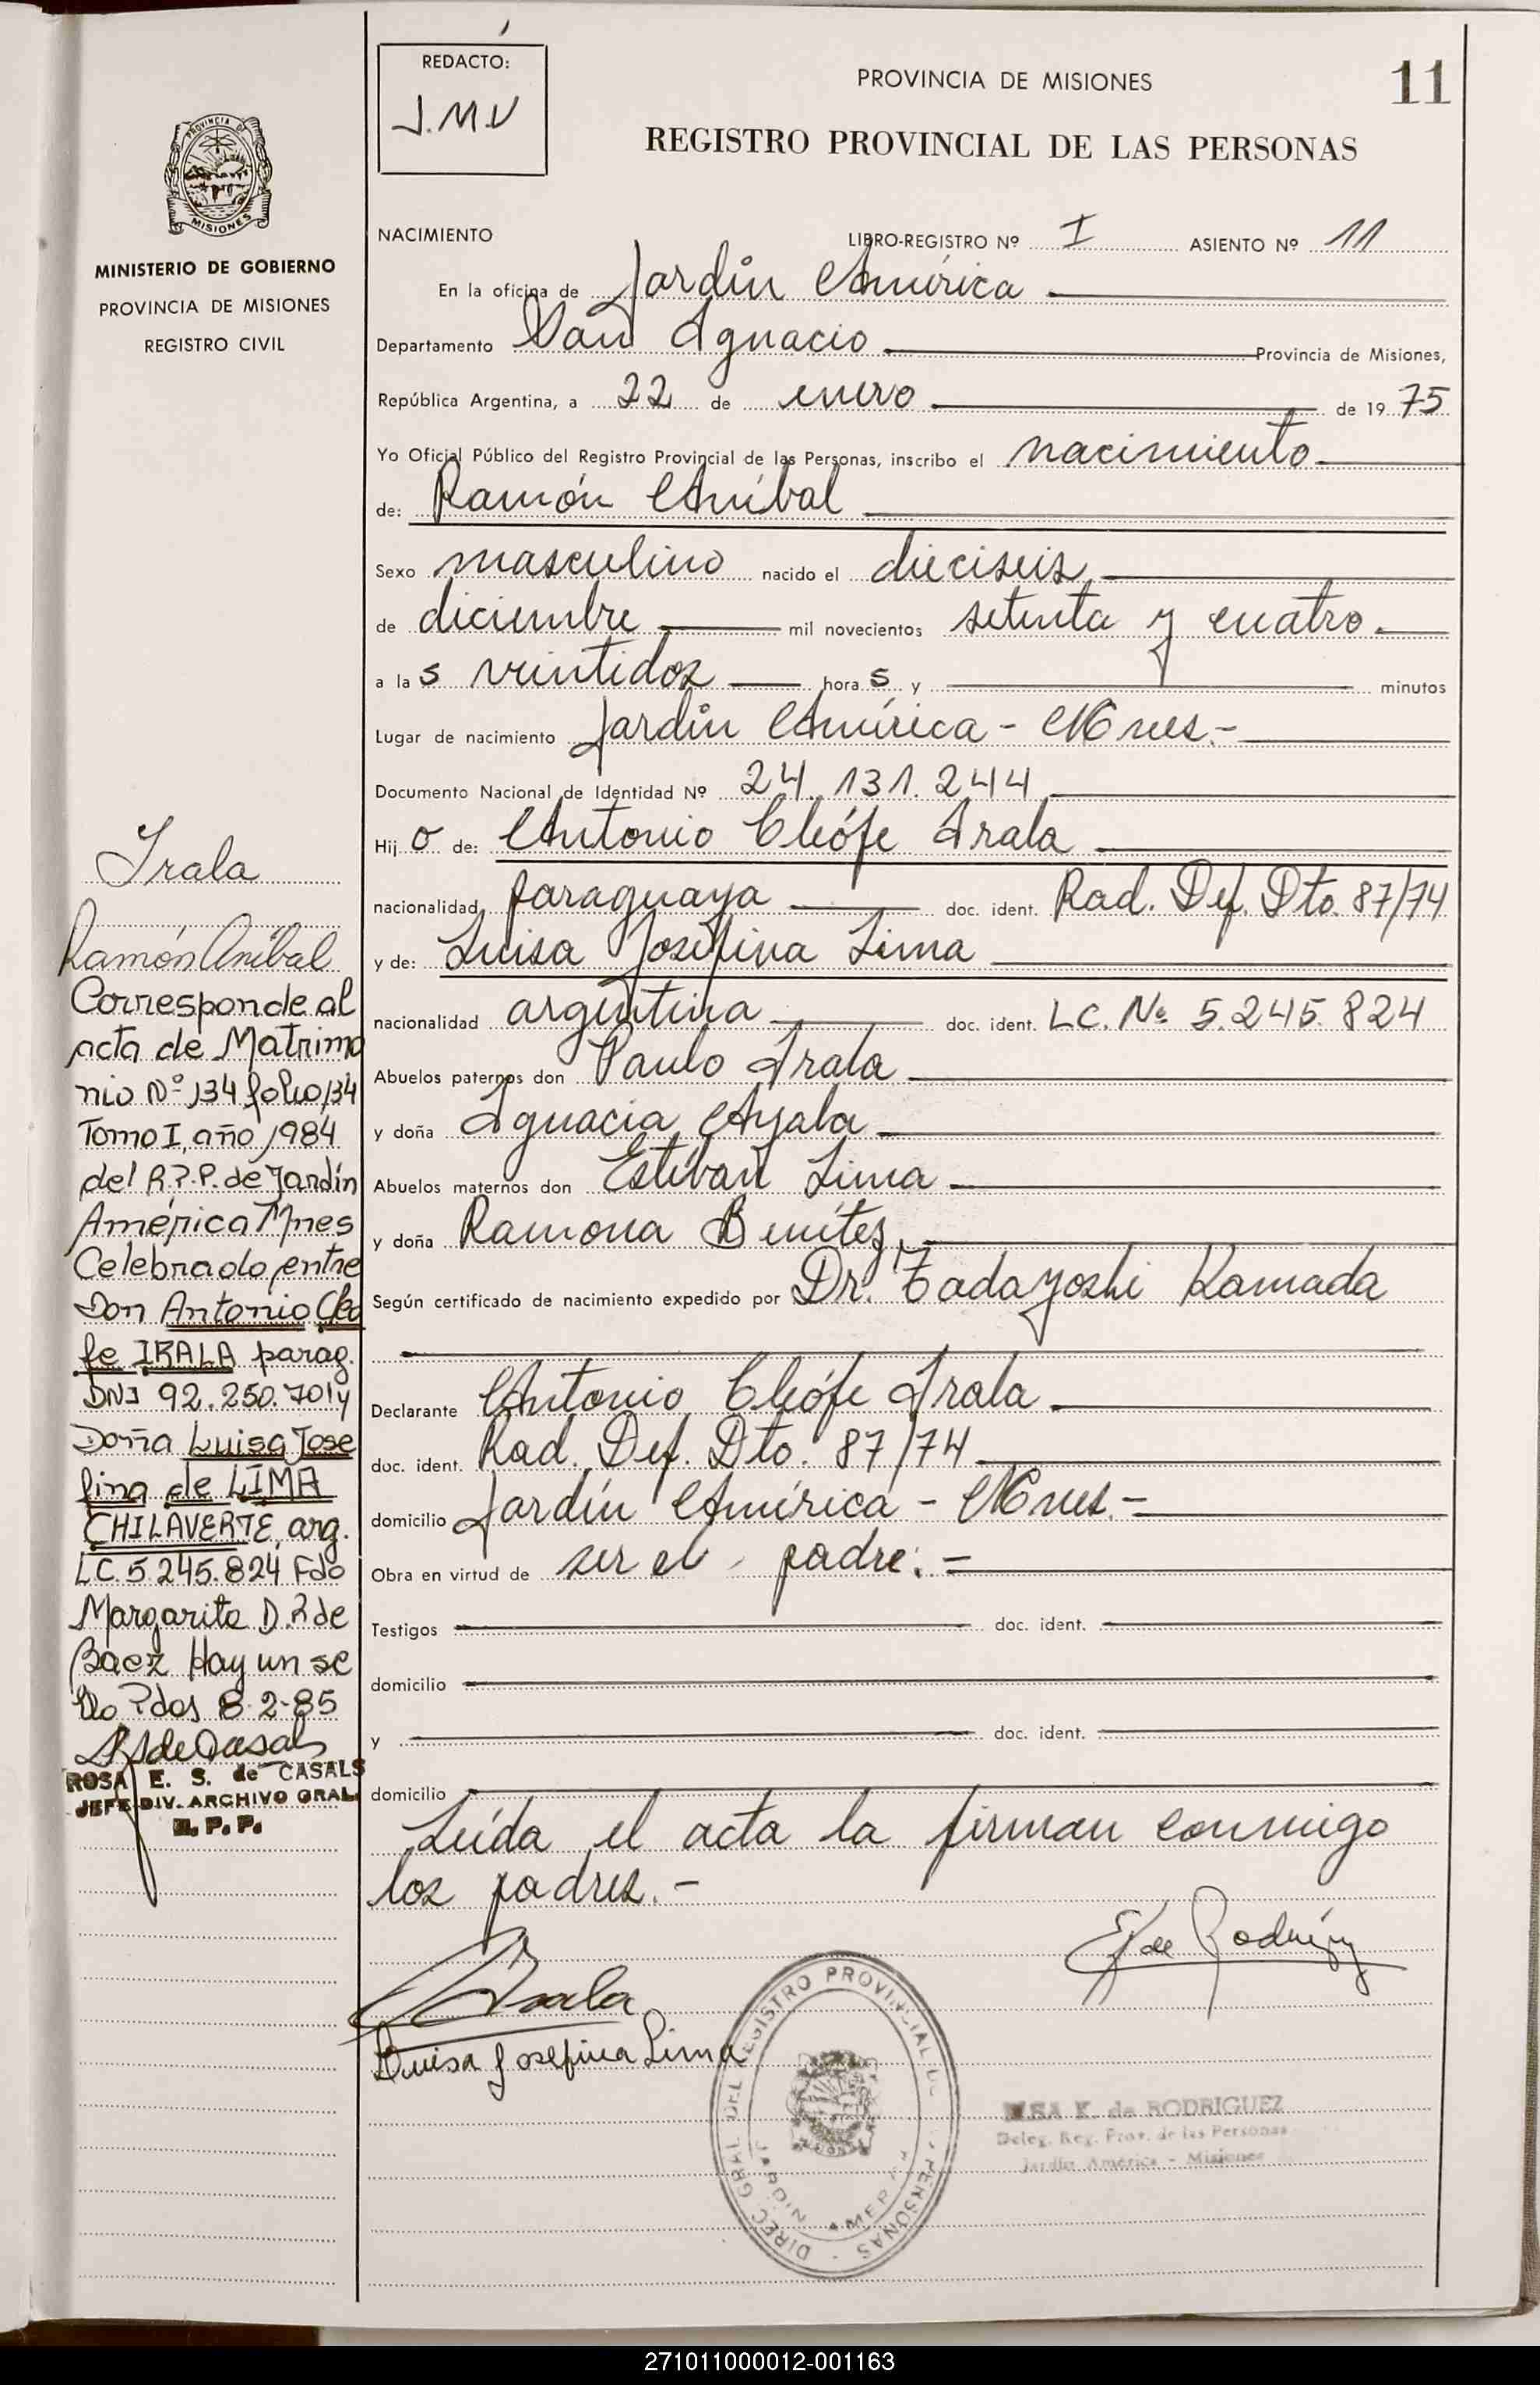 REDACTÓ:
J.M.V
PROVINCIA DE MISIONES
11
REGISTRO PROVINCIAL DE LAS PERSONAS
PROVINCIA DE
MISIONES
MINISTERIO DE GOBIERNO
PROVINCIA DE MISIONES
REGISTRO CIVIL
NACIMIENTO LIBRO-REGISTRO Nº I ASIENTO Nº 11
En la oficina de Jardín América
Departamento San Ignacio Provincia de Misiones,
República Argentina, a 22 de enero de 1975
Yo Oficial Público del Registro Provincial de las Personas, inscribo el nacimiento
de: Ramón Aníbal
Sexo masculino nacido el dieciseis
de diciembre mil novecientos setenta y cuatro.
a las veintidos horas y minutos
Lugar de nacimiento Jardín América - Mnes.-
Documento Nacional de Identidad Nº 24.131.244
Hijo de: Antonio Cleófe Irala
nacionalidad paraguaya doc. ident. Rad. Def. Dto. 87/74
y de: Luisa Josefina Lima
nacionalidad argentina doc. ident. LC. Nº 5.245.824
Abuelos paternos don Paulo Irala
y doña Ignacia Ayala
Abuelos maternos don Estéban Lima
y doña Ramona Benítez
Según certificado de nacimiento expedido por Dr. Tadayoshi Kamada
Declarante Antonio Cleófe Irala
doc. ident. Rad. Def. Dto. 87/74
domicilio Jardín América - Mnes.-
Obra en virtud de ser el padre.-
Testigos doc. ident.
domicilio
y doc. ident.
domicilio
Leída el acta la firman conmigo
los padres.-
Irala
Luisa Josefina Lima
E K de Rodríguez
DIREC GRAL DEL REGISTRO PROVINCIAL DE PERSONAS
JARDIN AMERICA
ELSA K. de RODRIGUEZ
Deleg. Reg. Prov. de las Personas
Jardín América - Misiones
Irala
Ramón Aníbal
Corresponde al
acta de Matrimo
nio Nº 134 folio 134
Tomo I, año 1984
del R.P.P. de Jardín
América Mnes
Celebrado entre
Don Antonio Cleo
fe IRALA parag.
DNI 92.250.701 y
Doña Luisa Jose
fina de LIMA
CHILAVERTE, arg.
LC. 5.245.824 Fdo
Margarita D. R de
Baez Hay un se
llo Pdas 8-2-85
RS de Casals
ROSA E. S. de CASALS
JEFE DIV. ARCHIVO GRAL.
R. P. P.
271011000012-001163